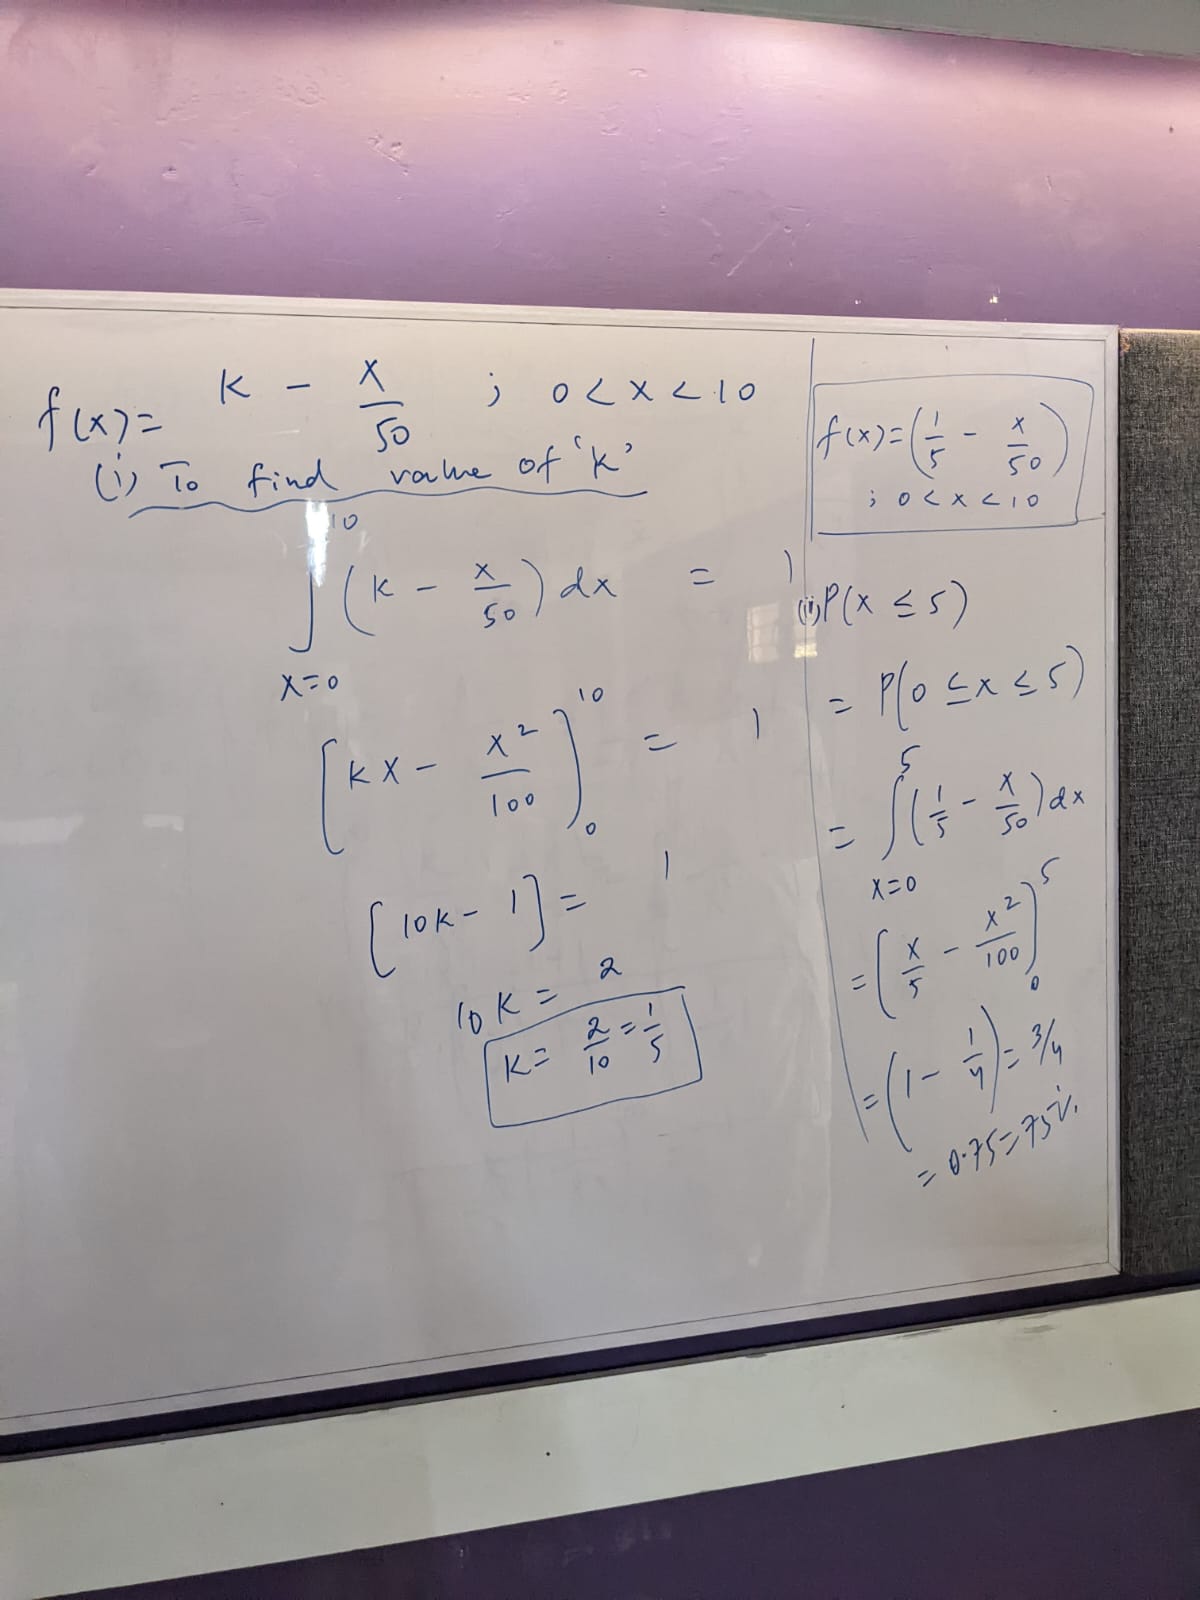 f(x) = k - x/50 ; 0 < x < 10
(i) To find value of 'k'
∫_{x=0}^{10} (k - x/50) dx = 1
[kx - x²/100]_0^{10} = 1
[10k - 1] = 1
10k = 2
k = 2/10 = 1/5
f(x) = (1/5 - x/50)
; 0 < x < 10
(ii) P(x ≤ 5)
= P(0 ≤ x ≤ 5)
= ∫_{x=0}^{5} (1/5 - x/50) dx
= (x/5 - x²/100)_0^5
= (1 - 1/4) = 3/4
= 0.75 = 75%